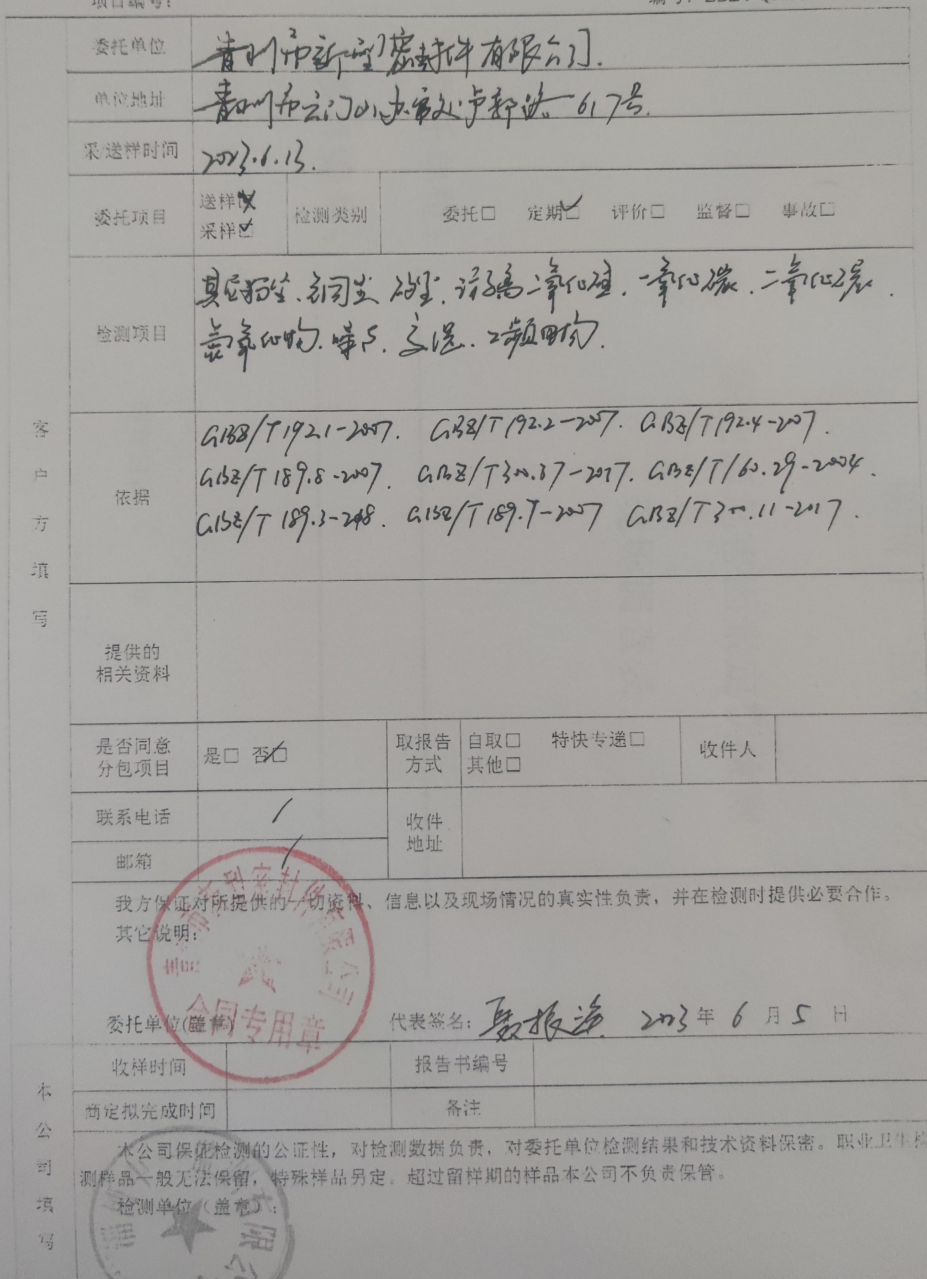 项目编号:
委托单位 青州市新型密封件有限公司.
单位地址 青州市云门山办事处 617号.
采/送样时间 2023.6.13.
委托项目 送样☑ 采样☑ 检测类别 委托□ 定期☑ 评价□ 监督□ 事故□
检测项目 其它粉尘、 游离二氧化硅、一氧化碳、二氧化碳、
氮氧化物、噪声、高温、工频电场.
依据 GBZ/T192.1-2007. GBZ/T192.2-2007. GBZ/T192.4-2007.
GBZ/T189.8-2007. GBZ/T300.37-2017. GBZ/T160.29-2004.
GBZ/T189.3-2018. GBZ/T189.7-2007 GBZ/T300.11-2017.
客户方填写
提供的
相关资料
是否同意
分包项目 是□ 否☑ 取报告
方式 自取□ 特快专递□
其他□ 收件人
联系电话 / 收件
地址
邮箱 /
我方保证对所提供的一切资料、信息以及现场情况的真实性负责,并在检测时提供必要合作。
其它说明:
青州市新型密封件有限公司
合同专用章
委托单位(盖章) 代表签名: 聂振 2023年6月5日
收样时间 报告书编号
商定拟完成时间 备注
本公司填写
本公司保证检测的公证性,对检测数据负责,对委托单位检测结果和技术资料保密。职业卫生检
测样品一般无法保留,特殊样品另定。超过留样期的样品本公司不负责保管。
检测单位(盖章):